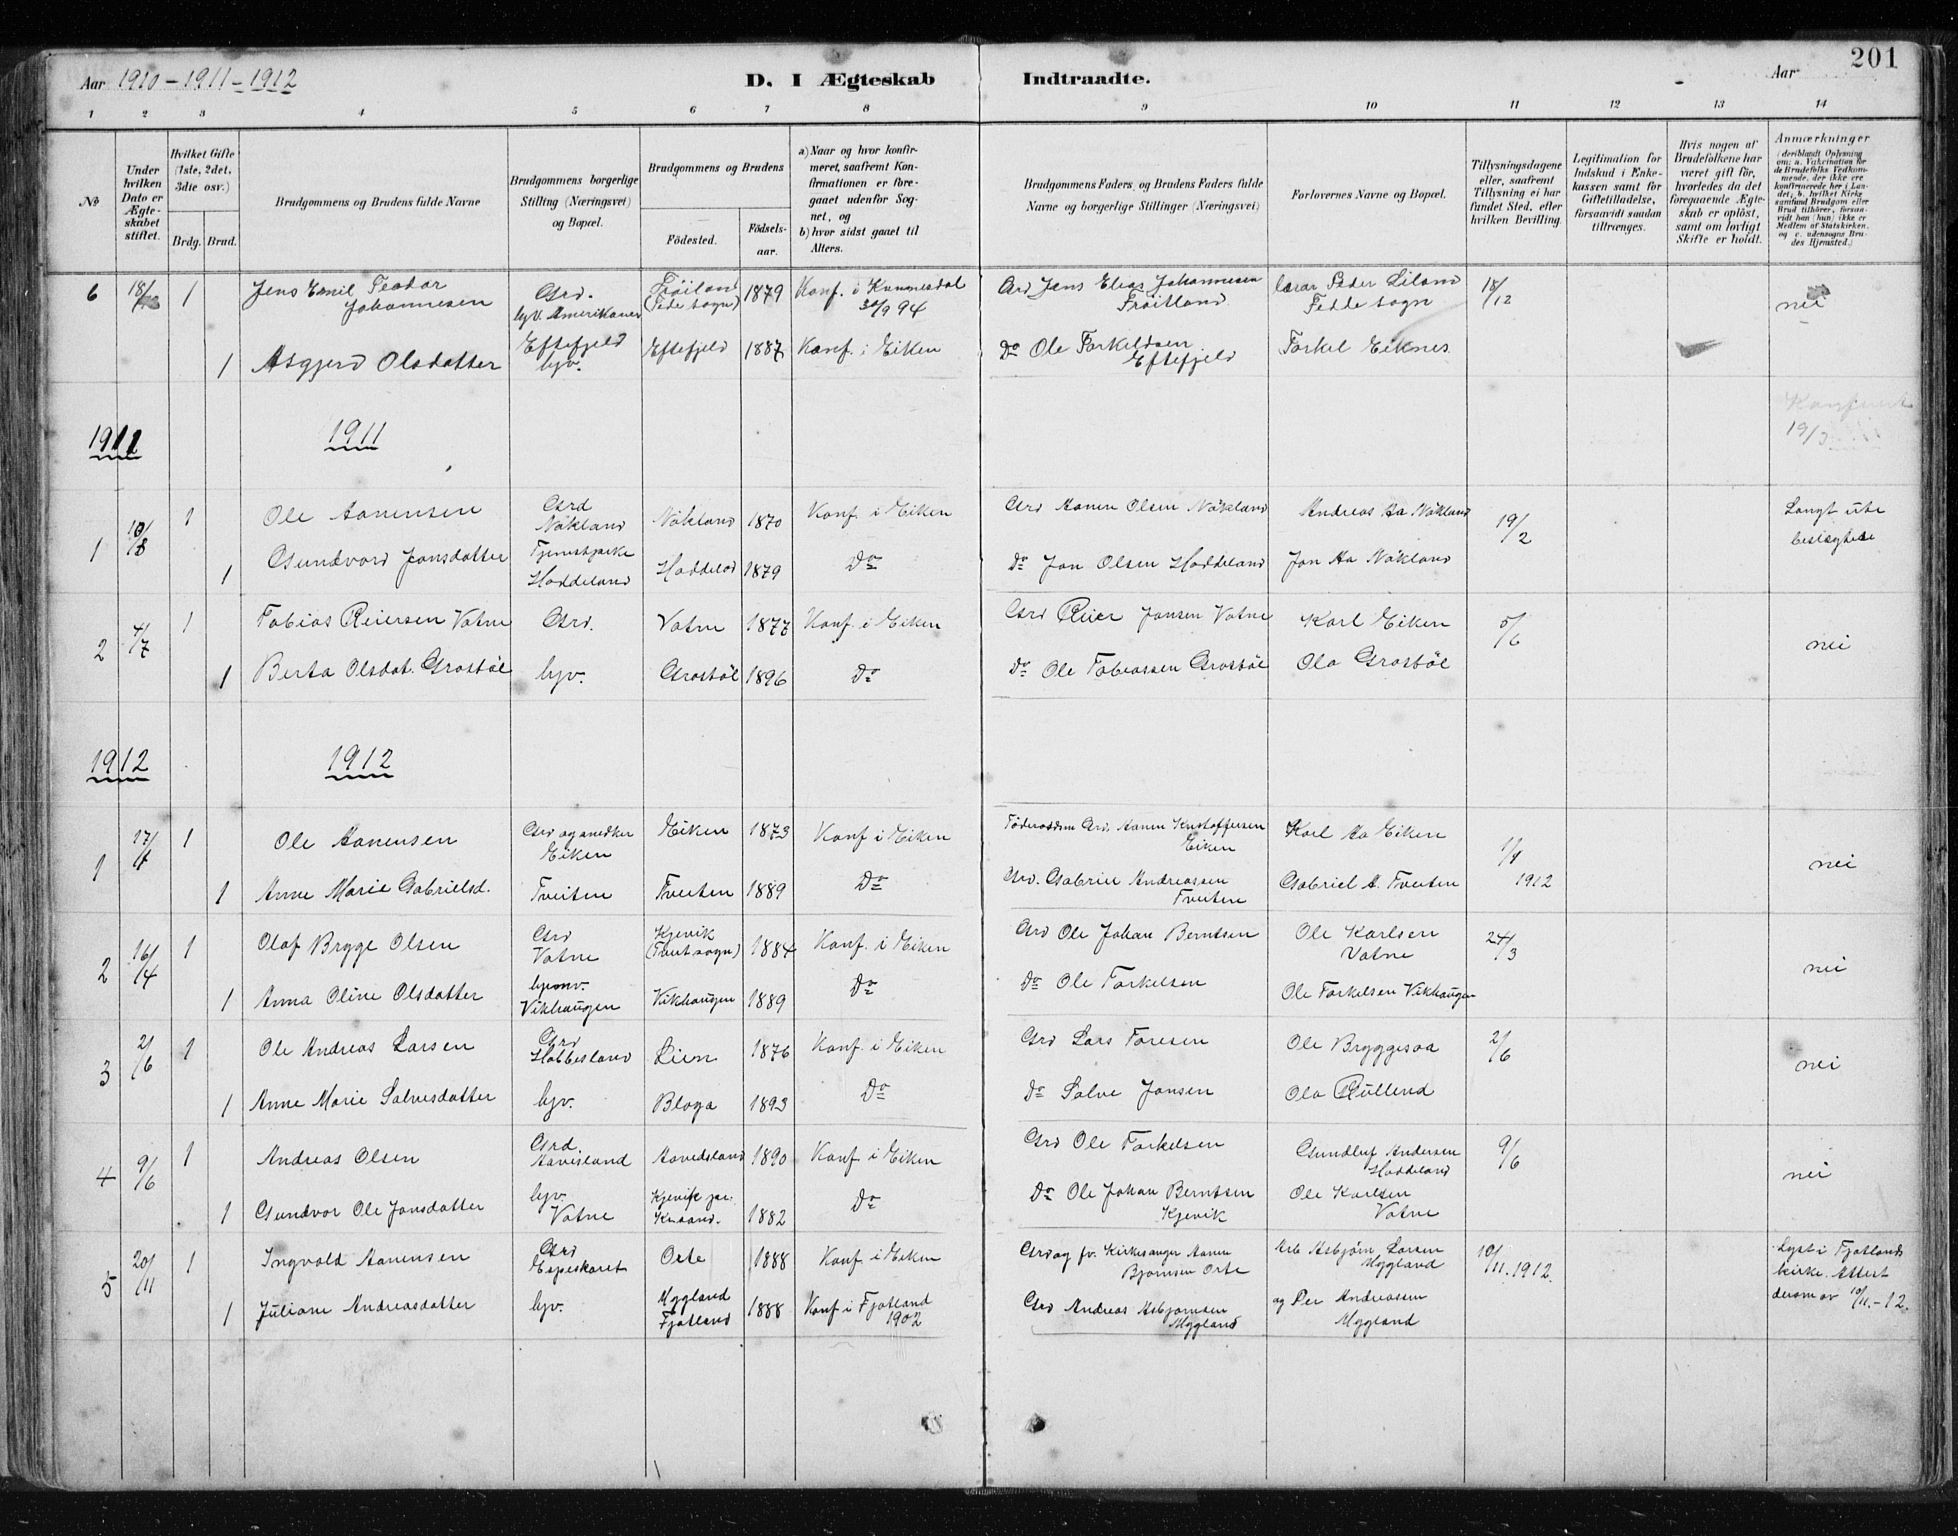 201
Aar 1910 - 1911 - 1912
D. I Ægteskab Indtraadte.
Aar
1 2 3 4 5 6 7 8 9 10 11 12 13 14
No
Under hvilken Dato er Ægteskabet stiftet.
Hvilket Gifte (1ste, 2det, 3die osv.)
Brdg. Brud.
Brudgommens og Brudens fulde Navne
Brudgommens borgerlige Stilling (Næringsvei) og Bopæl.
Brudgommens og Brudens
Fødested.
Fødsels-aar.
a) Naar og hvor konfirmeret, saafremt Konfirmationen er foregaaet udenfor Sognet, og
b) hvor sidst gaaet til Alters.
Brudgommens Faders og Brudens Faders fulde Navne og borgerlige Stillinger (Næringsvei)
Forlovernes Navne og Bopæl.
Tillysningsdagene eller, saafremt Tillysning ei har fundet Sted, efter hvilken Bevilling.
Legitimation for Indskud i Enkekassen samt for Giftetilladelse, forsaavidt saadan tiltrænges.
Hvis nogen af Brudefolkene har været gift før, hvorledes da det foregaaende Ægteskab er opløst, samt om lovligt Skifte er holdt.
Anmærkninger
(deriblandt Oplysning om: a. Vakcination for de Brudefolks Vedkommende, der ikke ere konfirmerede her i Landet; b. hvilket Kirkesamfund Brudgom eller Brud tilhører, forsaavidt han (hun) ikke er Medlem af Statskirken, og c. udensogns Brudes Hjemsted.)
6 1 Jens Emil Teodor Johannesen Grd. ugv. Amerikaner Fröiland (Fede sogn) 1879 Konf. i Kvinesdal 30/9 94 Grd Jens Elias Johannesen Fröitland Peder Liland Fedde sogn 18/12 nei
1 Asgjerd Olsdatter Eftefjeld hjv. Eftefjeld 1887 Konf. i Eiken Do Ole Torkeldsen Eftefjeld Torkel Eiknes
1911 1911
19/3
1 1 Ole Aanensen Grd Nökland Nökland 1870 Konf. i Eiken Grd Aanen Olsen Nökland Andreas Aa Nökland 19/2 Langt ute beslægtede
1 Gundvord Jonsdatter Tjenestpike Haddeland Haddeland 1879 Do Do Jon Olsen Haddeland Jon Aa Nökland
2 4/7 1 Tobias Reiersen Vatne Grd. Vatne 1877 Konf. i Eiken Grd Reier Jonsen Vatne Karl Eiken 5/6 nei
1 Berta Olsdat. Grostöl hjv. Grostöl 1896 Do Do Ole Tobiassen Grostöl Ola Grostöl
1912 1912
1 17/4 1 Ole Aanensen Grd og snedker Eiken Eiken 1873 Konf i Eiken Föderaadsm Grd. Aanen Kristoffersen Eiken Karl Aa Eiken 1/4 1912 nei
1 Anne Marie Gabrielsd. Tveiten Tveiten 1889 Do Grd. Gabriel Andreassen Tveiten Gabriel A. Tveiten
2 16/4 1 Olaf Brygge Olsen Grd Vatne Kjevik (Tveit sogn) 1884 Konf. i Eiken Grd Ole Johan Berntsen Ole Karlsen Vatne 24/3 nei
1 Anna Oline Olsdatter Vikhaugen Vikhaugen 1889 Do Do Ole Torkelsen Ole Torkelsen Vikhaugen
3 21/6 1 Ole Andreas Larsen Grd Habbesland Lien 1876 Konf. i Eiken Grd Lars Toresen Ole Bryggesaa 2/6 nei
1 Anne Marie Salvesdatter hjv. Bloga 1893 Do Do Salve Jonsen Ola Rullend
4 9/6 1 Andreas Olsen Grd Aavesland Aavedsland 1890 Konf. i Eiken Grd Ole Torkelsen Gundluf Andersen Haddeland 9/6 nei
1 Gundvor Ole Jonsdatter hjv. Vatne Kjevik pr. Krsand. 1882 Do Do Ole Johan Berntsen Kjevik Ole Karlsen Vatne
5 20/11 1 Ingvald Aanensen Grd Espeskaret Orte 1888 Konf. i Eiken Grd og fv. Kirkesanger Aanen Bjornsen Orte Asbjørn Larsen Mygland 10/11. 1912. Lyst i Fjotlands kirke. Attest derom av 10/11.-12.
1 Juliane Andreasdatter hjv. Mygland Fjotland 1888 Konf i Fjotland 1902 Grd Andreas Asbjornsen Mygland og Per Andreassen Mygland